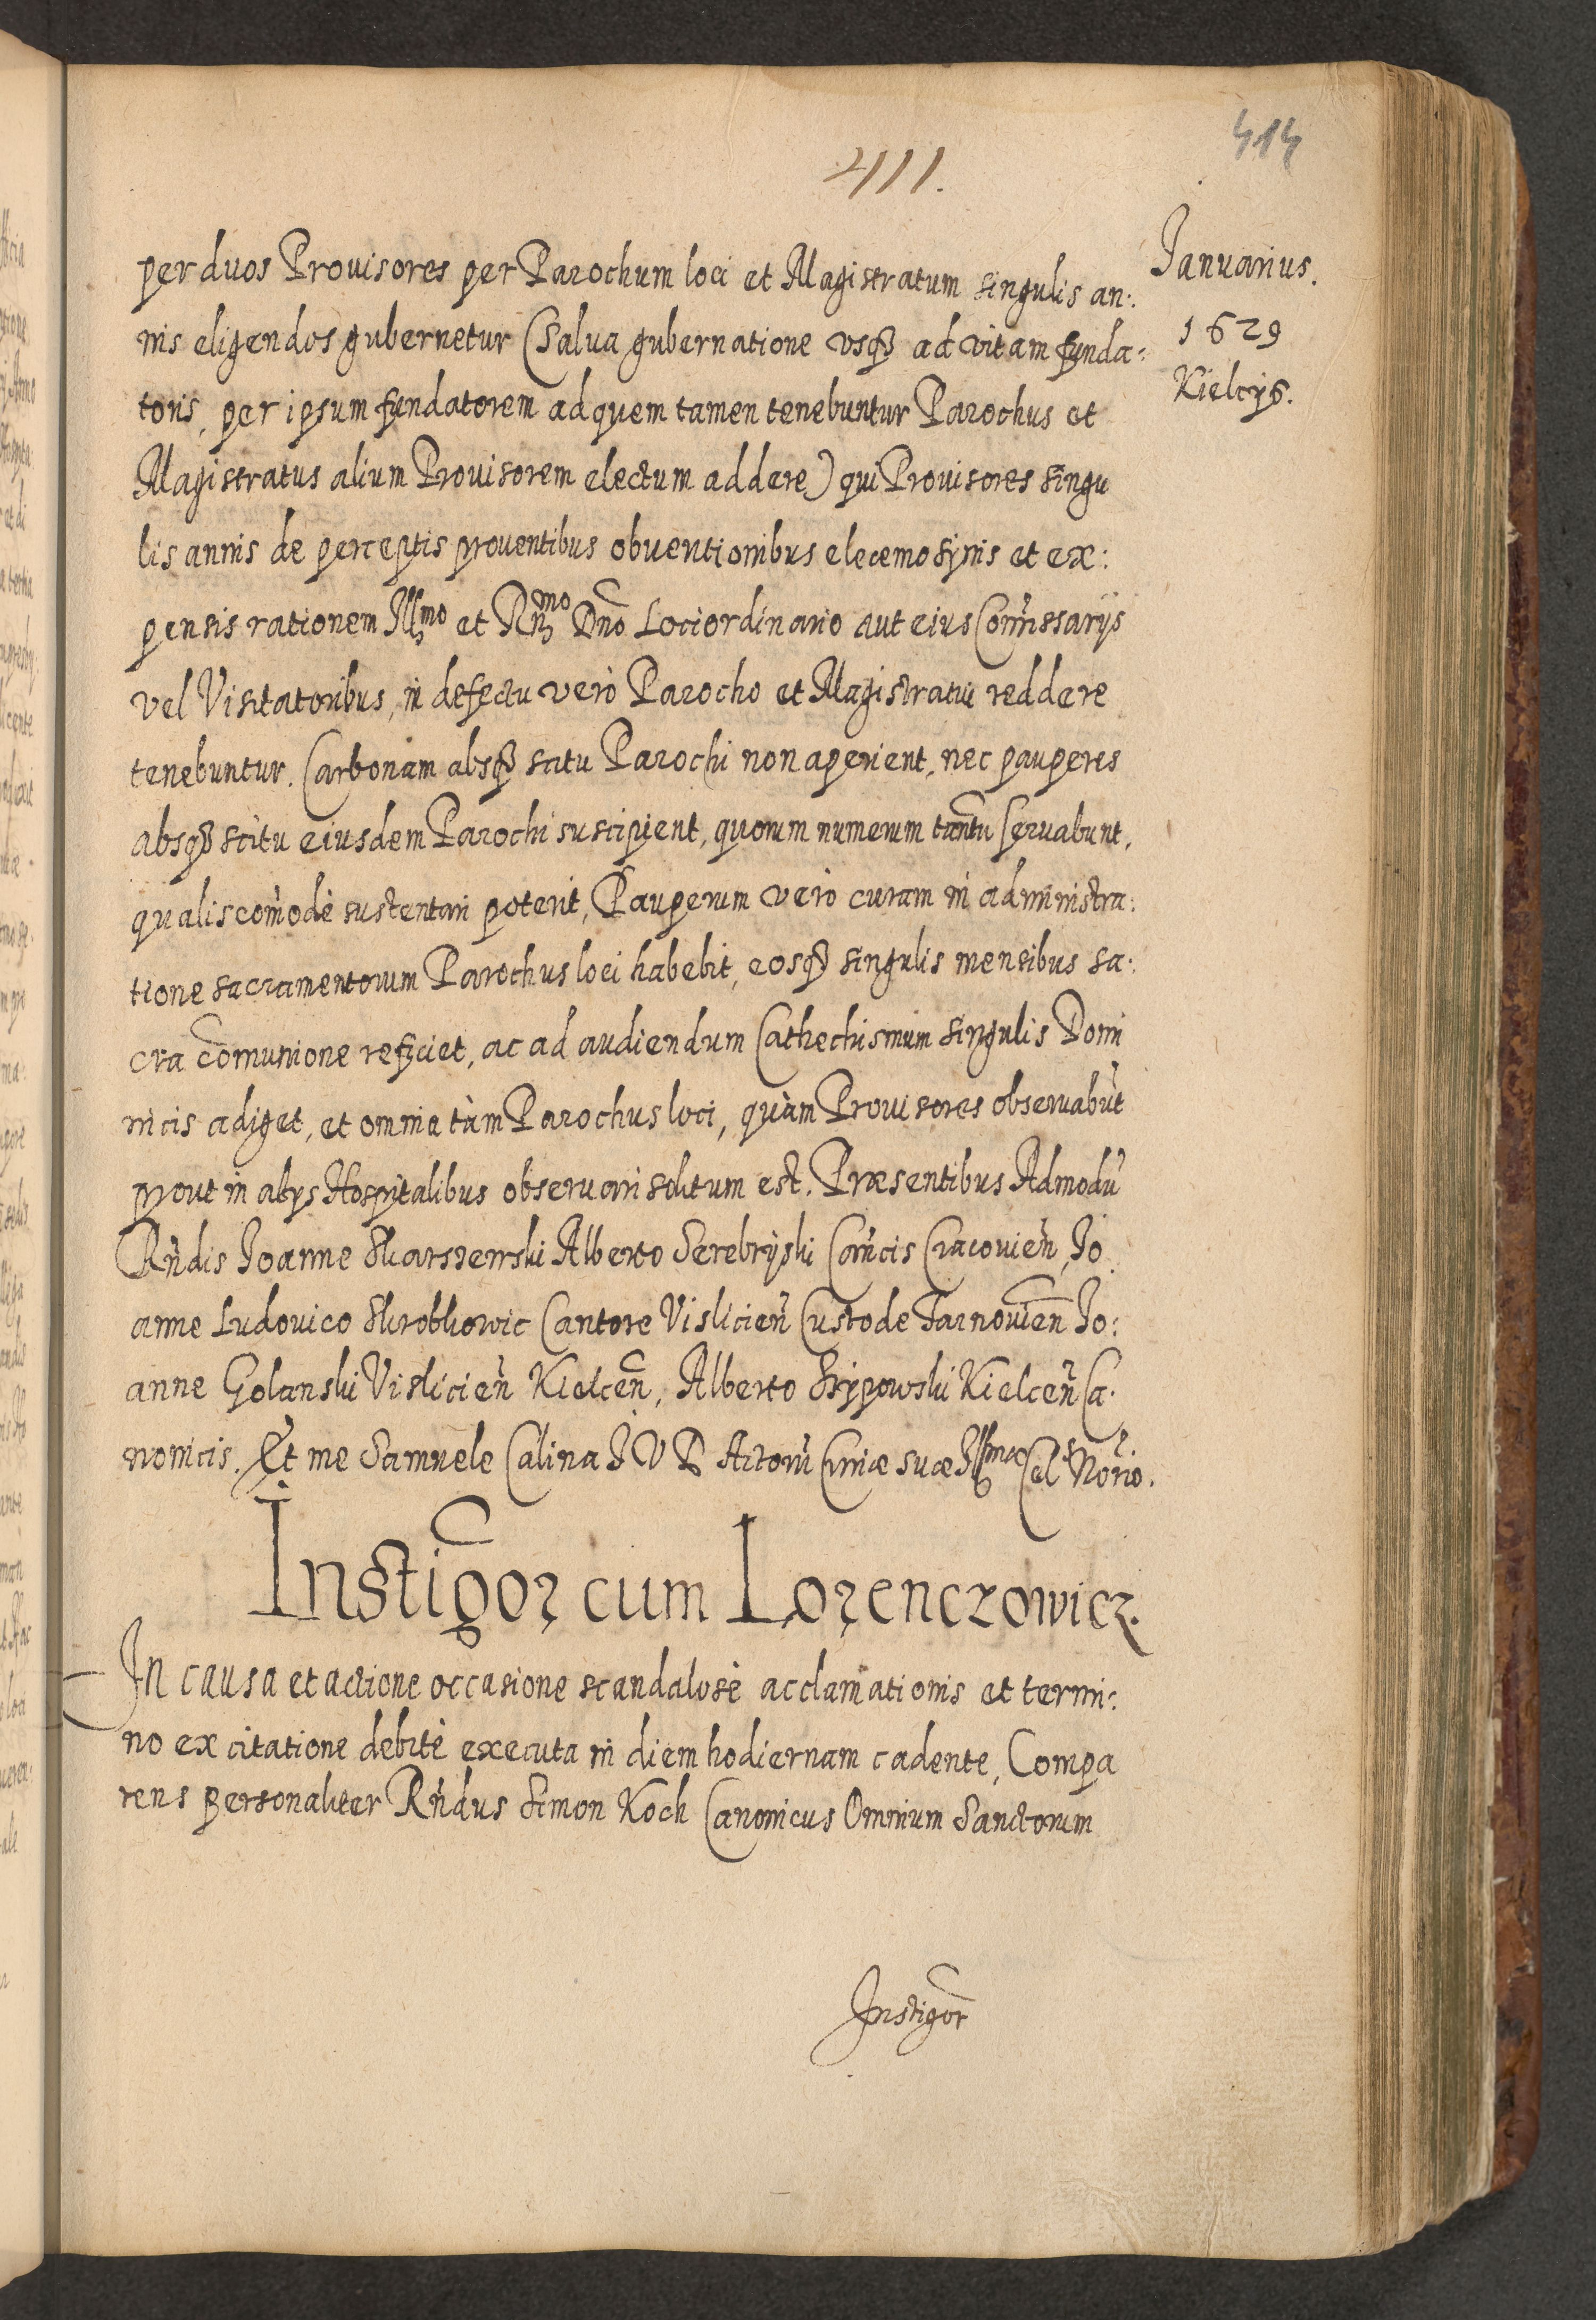 414
411.
Januarius.
1629
Kielcijs.
per duos Provisores per Parochum loci et Magistratum singulis an:
nis eligendos gubernetur (Salua gubernatione vsqꝫ ad vitam funda:
toris, per ipsum fundatorem ad quem tamen tenebuntur Parochus et
Magistratus alium Prouisorem electum addere) qui Prouisores singu
lis annis de perceptis prouentibus obuentionibus eleemosynis et ex:
pensis rationem Illmo et Rñmo Dño Loci ordinario aut eius Com̃issarijs
vel Visitatoribus, in defectu verò Parocho et Magistratui reddere
tenebuntur. Carbonam absqꝫ scitu Parochi non aperient, nec pauperes
absqꝫ scitu eiusdem Parochi suscipient, quorum numerum tantũ seruabunt,
qualis com̃odè sustentari poterit, Pauperum verò curam in administra:
tione sacramentorum Parochus loci habebit, eosqꝫ singulis mensibus sa:
cra com̃unione reficiet, ac ad audiendum Cathechismum singulis Domi
nicis adiget, et omnia tàm Parochus loci, quàm Prouisores obseruabũt
prout in alijs Hospitalibus obseruari solitum est. Præsentibus Admodũ
Rñdis Joanne Skarszewski Alberto Serebryski Cañcis Cracovieñ, Jo
anne Ludouico Skrobkowic Cantore Vislicieñ Custode Tarnovieñ Jo:
anne Golanski Vislicieñ Kielceñ, Alberto Srzypowski Kielceñ Ca:
nonicis. Et me Samuele Calina J V D Actorũ Curiæ suæ Illmæ Cel Norio.
Instigõr cum Lorenczowicz.
In causa et actione occasione scandalosè acclamationis et termi:
no ex citatione debitè executa in diem hodiernam cadente, Compa
rens personaliter Rñdus Simon Koch Canonicus Omnium Sanctorum
Instigõr